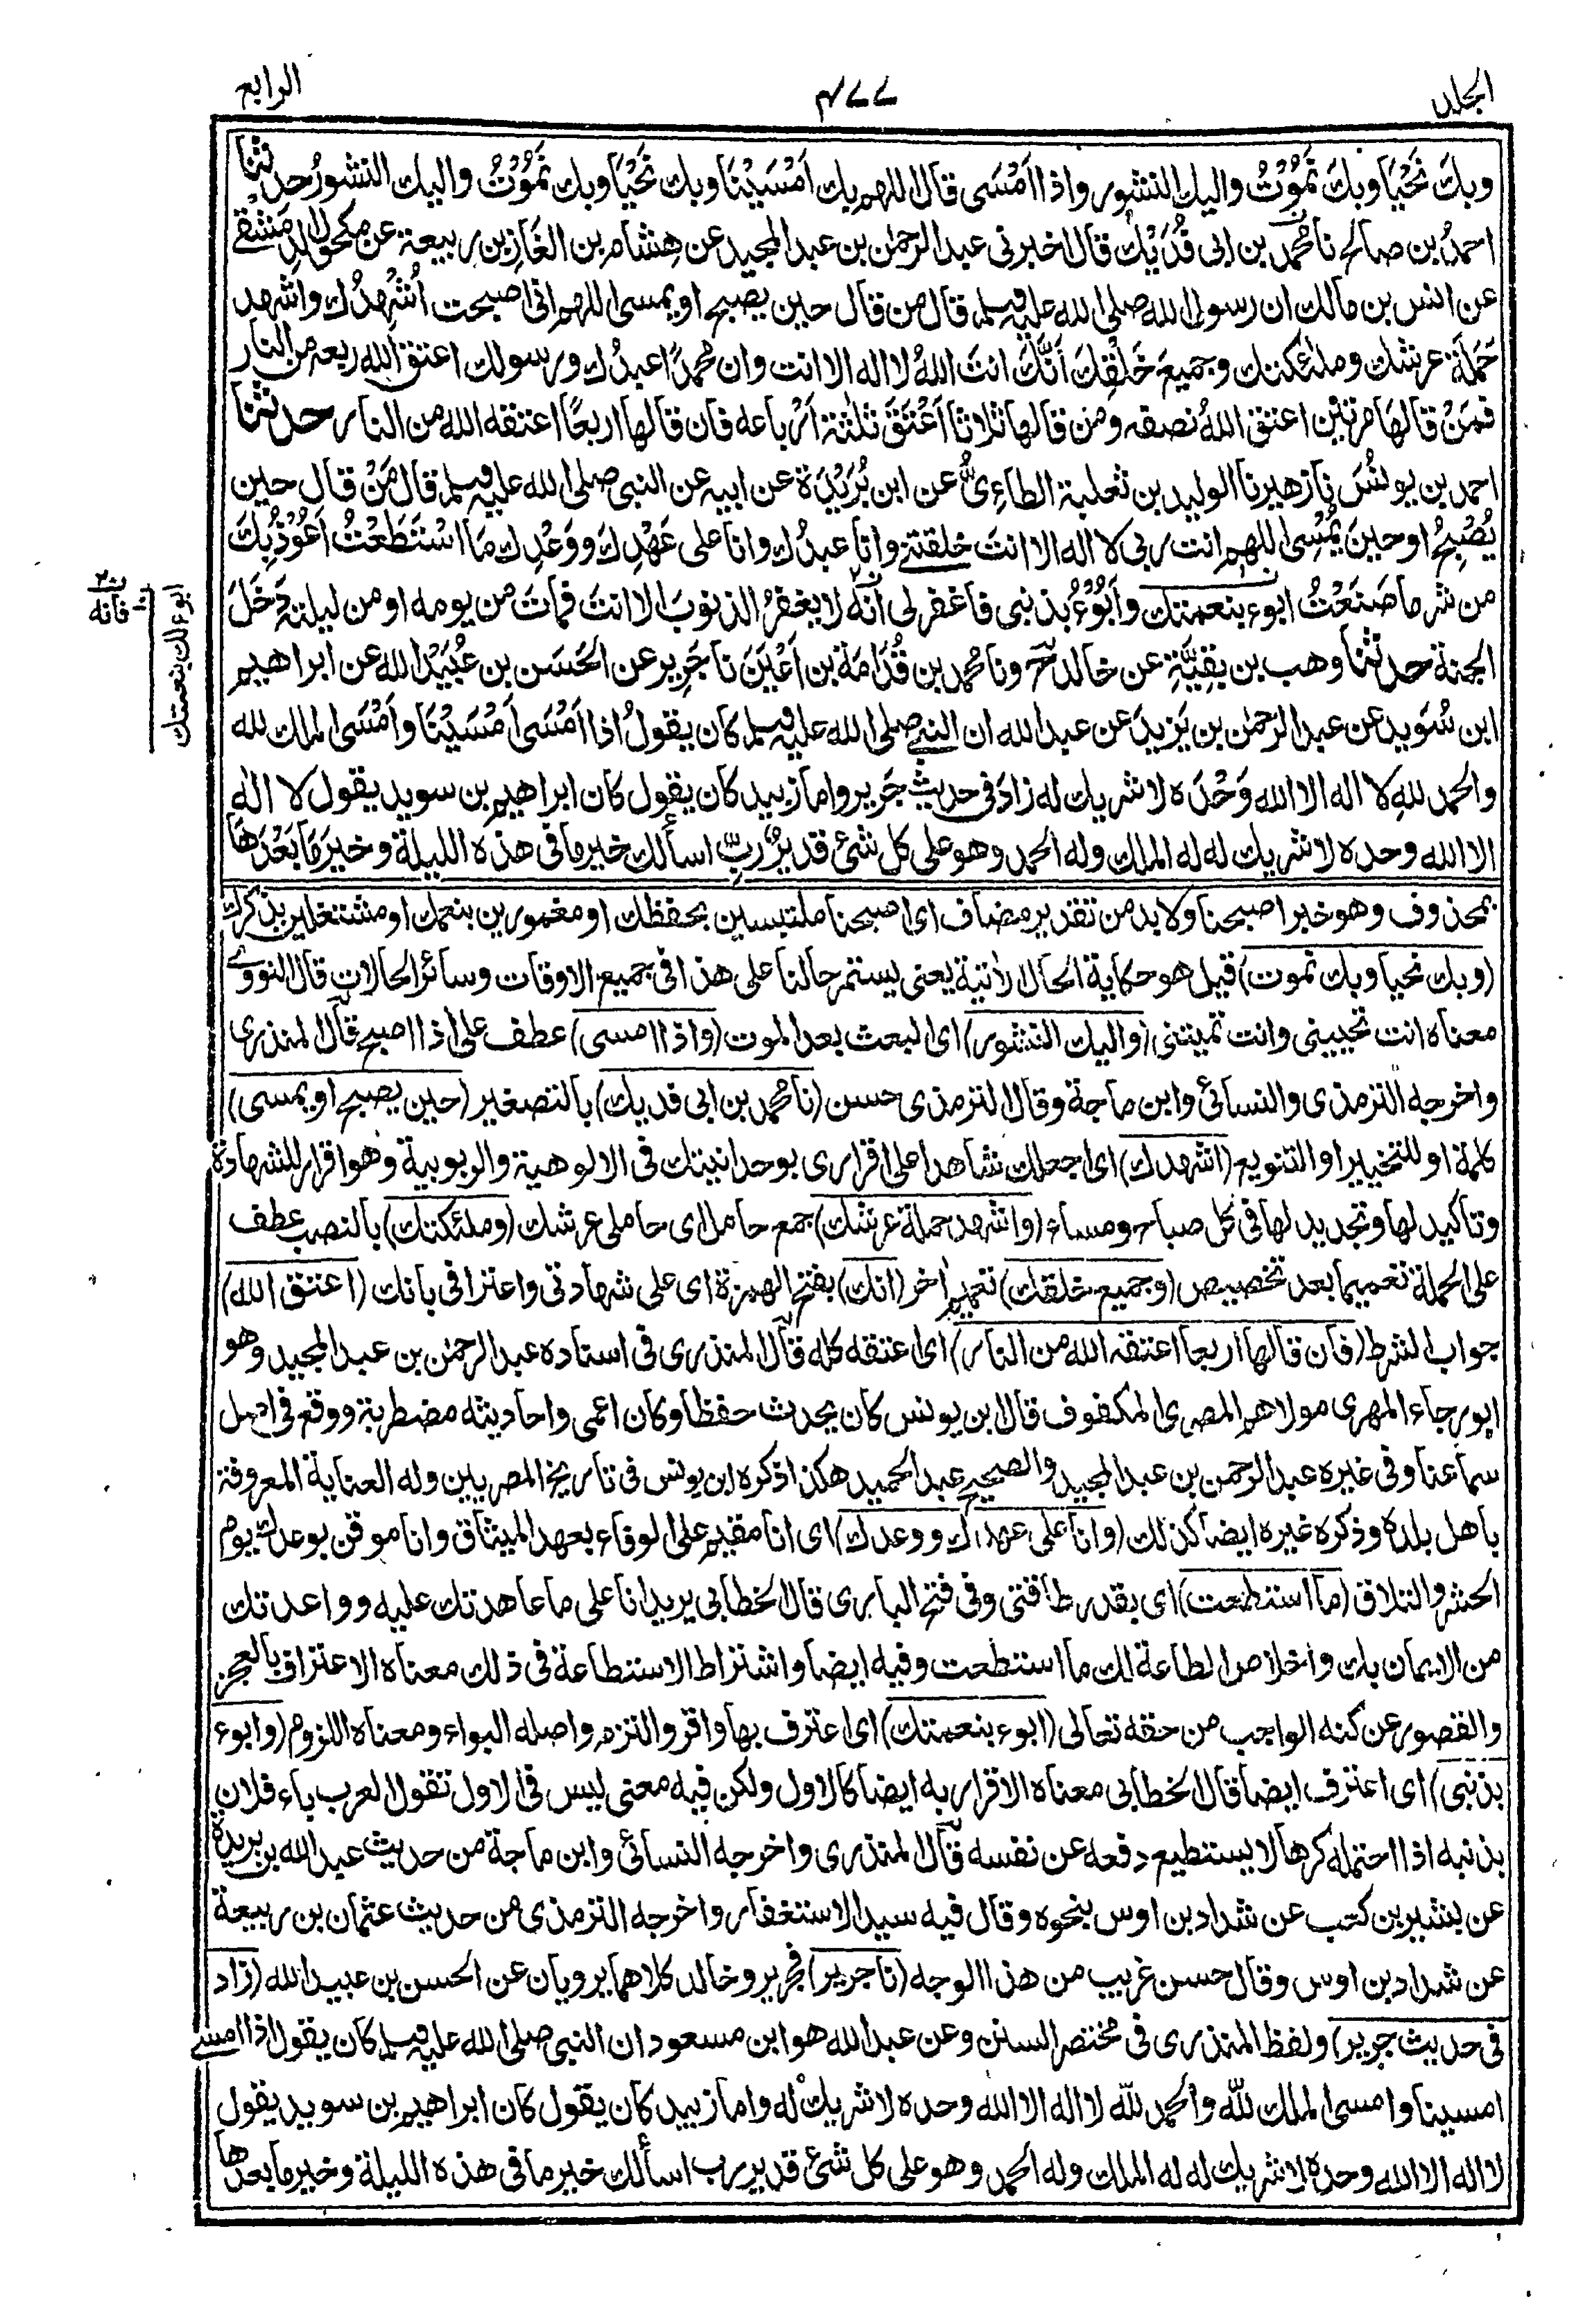 المجلد
٤٧٧
الرابع
وبكَ نَحْيَا وبكَ نَمُوْتُ واليك النشور واذا اَمْسَى قال اللهم بك اَمْسَيْنَا وبك نَحْيَا وبك نَمُوْتُ واليك النشورُ حدثنا
احمدُ بن صالح نا محمدُ بن ابى فُدَيْكٍ قال اخبرنى عبد الرحمٰن بن عبد المجيد عن هِشَام بن الغَازِ بن ربيعة عن مكحول الدِمَشْقى
عن انس بن مالك ان رسول الله صلى الله عليه وسلم قال من قال حين يصبح او يمسى اللهم انى اصبحت اُشْهِدُك واشهد
حَمَلَةَ عرشك وملئكتك وجميعَ خَلْقِكَ اَنَّكَ انتَ اللهُ لا اله الا انت وان محمدًا عبدُك ورسولك اعتق الله ربعه من النار
فمَنْ قالها مرتَيْن اعتق اللهُ نصفه ومن قالها ثلاثا اَعْتَقَ ثلٰثة اَرْباعه فان قالها اربعًا اعتقه الله من النار حدثنا
احمد بن يونُسَ نا زهير نا الوليد بن ثعلبة الطاءِىُّ عن ابن بُرَيْدَة عن ابيه عن النبى صلى الله عليه وسلم قال مَنْ قال حين
يُصْبِحُ او حينَ يُمْسِى اللهم انت ربى لا اله الا انتَ خلقتنى وانا عبدُك وانا على عَهْدِكَ ووَعْدِك مَا اسْتَطَعْتُ اَعُوْذُ بِكَ
من شر ما صَنَعْتُ ابوء بنعمتك وأَبُوْءُ بذنبى فاغفر لى انه لا يغفرُ الذنوبَ الا انتَ فماتَ من يومه او من ليلته دَخَلَ
الجنة حدثنا وهب بن بقِيَّةِ عن خالد ح ونا محمد بن قُدَامَةَ بن اَعْيَنَ نا جَرِير عن الحَسَن بن عُبَيْد الله عن ابراهيم
ابن سُوَيد عن عبد الرحمٰن بن يَزِيدَ عن عبد الله ان النبى صلى الله عليه وسلم كان يقولُ اذا اَمْسَى اَمْسَيْنَا واَمْسَى الملك لله
والحمد للهِ لا اله الا الله وَحْدَه لا شريك له زادَ فى حديث جَرِير واما زبيد كان يقول كان ابراهيم بن سويد يقول لا اله
الا الله وحده لا شريك له له الملك وله الحمد وهو على كل شئ قديرٌ ربِّ اسألك خير ما فى هذه الليلة وخيرَ مَا بَعْدَهَا
ابوء لك بنعمتك
فانه
بمحذوف وهو خبر اصبحنا ولا بد من تقدير مضاف اى اصبحنا ملتبسين بحفظك او مغمورين بنعمك او مشتغلين بذكرك
(وبك نحيا وبك نموت) قيل هو حكاية الحال الاٰتية يعنى يستمر حالنا على هذا فى جميع الاوقات وسائر الحالات قال النووى
معناه انت تحيينى وانت تميتنى (واليك النشور) اى البعث بعد الموت (واذا امسى) عطف على اذا اصبح قال المنذرى
واخرجه الترمذى والنسائى وابن ماجة وقال الترمذى حسن (نا محمد بن ابى فديك) بالتصغير (حين يصبح او يمسى)
كلمة او للتخيير او التنويع (اشهدك) اى اجعلك شاهدا على اقرارى بوحدانيتك فى الالوهية والربوبية وهو اقرار للشهادة
وتاكيد لها وتجديد لها فى كل صباح ومساء (واشهد حملة عرشك) جمع حامل اى حاملى عرشك (وملئكتك) بالنصب عطف
على الحملة تعميما بعد تخصيص (وجميع خلقك) تعميم اٰخر (انك) بفتح الهمزة اى على شهادتى واعترافى بانك (اعتق الله)
جواب الشرط (فان قالها اربعا اعتقه الله من النار) اى اعتقه كله قال المنذرى فى اسناده عبد الرحمٰن بن عبد المجيد وهو
ابو رجاء المهرى مولاهم المصرى المكفوف قال ابن يونس كان يحدث حفظا وكان اعمى واحاديثه مضطربة ووقع فى اصل
سماعنا وفى غيره عبد الرحمن بن عبد المجيد والصحيح عبد الحميد هكذا ذكره ابن يونس فى تاريخ المصريين وله العناية المعروفة
باهل بلده وذكره غيره ايضا كذلك (وانا على عهدك ووعدك) اى انا مقيم على الوفاء بعهد الميثاق وانا موقن بوعدك يوم
الحشر والتلاق (ما استطعت) اى بقدر طاقتى وفى فتح البارى قال الخطابى يريد انا على ما عاهدتك عليه وواعدتك
من الايمان بك واخلاص الطاعة لك ما استطعت وفيه ايضا واشتراط الاستطاعة فى ذلك معناه الاعتراف بالعجز
والقصور عن كنه الواجب من حقه تعالى (ابوء بنعمتك) اى اعترف بها واقر والتزم واصله البواء ومعناه اللزوم (وابوء
بذنبى) اى اعترف ايضا قال الخطابى معناه الاقرار به ايضا كالاول ولكن فيه معنى ليس فى الاول تقول العرب باء فلان
بذنبه اذا احتمله كرها لا يستطيع دفعه عن نفسه قال المنذرى واخرجه النسائى وابن ماجة من حديث عبد الله بن بريدة
عن بشير بن كعب عن شداد بن اوس بنحوه وقال فيه سيد الاستغفار واخرجه الترمذى من حديث عثمان بن ربيعة
عن شداد بن اوس وقال حسن غريب من هذا الوجه (نا جرير) فجرير وخالد كلاهما يرويان عن الحسن بن عبيد الله (زاد
فى حديث جرير) ولفظ المنذرى فى مختصر السنن وعن عبد الله هو ابن مسعود ان النبى صلى الله عليه وسلم كان يقول اذا امسى
امسينا وامسى الملك لله والحمد لله لا اله الا الله وحده لا شريك له واما زبيد كان يقول كان ابراهيم بن سويد يقول
لا اله الا الله وحده لا شريك له له الملك وله الحمد وهو على كل شئ قدير رب اسألك خير ما فى هذه الليلة وخير ما بعدها